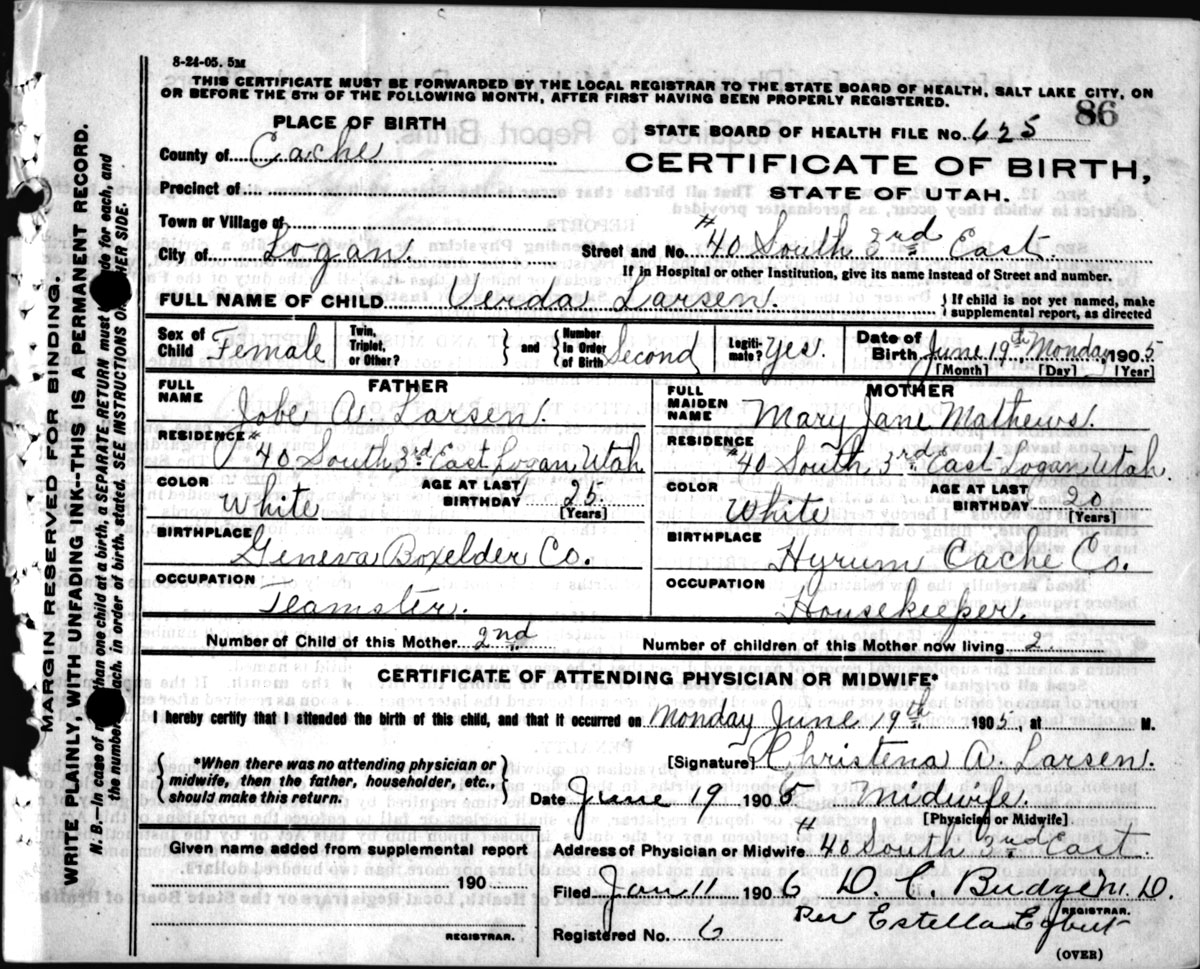 8-24-05. 5M
THIS CERTIFICATE MUST BE FORWARDED BY THE LOCAL REGISTRAR TO THE STATE BOARD OF HEALTH, SALT LAKE CITY, ON
OR BEFORE THE 5TH OF THE FOLLOWING MONTH, AFTER FIRST HAVING BEEN PROPERLY REGISTERED.
86
PLACE OF BIRTH
STATE BOARD OF HEALTH FILE No. 625
County of Cache
CERTIFICATE OF BIRTH,
Precinct of
STATE OF UTAH.
Town or Village of
City of Logan. Street and No. #40 South 3rd East.
If in Hospital or other Institution, give its name instead of Street and number.
FULL NAME OF CHILD Verda Larsen. {If child is not yet named, make supplemental report, as directed
Sex of Child Female Twin, Triplet, or Other? } and { Number in Order of Birth Second Legitimate? Yes. Date of Birth June 19th Monday 1905
[Month] [Day] [Year]
FATHER
MOTHER
FULL NAME Jobe A. Larsen.
FULL MAIDEN NAME Mary Jane Mathews.
RESIDENCE #40 South 3rd East Logan Utah
RESIDENCE #40 South 3rd East Logan Utah
COLOR White AGE AT LAST BIRTHDAY 25 [Years]
COLOR White AGE AT LAST BIRTHDAY 20 [Years]
BIRTHPLACE Geneva Boxelder Co.
BIRTHPLACE Hyrum Cache Co.
OCCUPATION Teamster.
OCCUPATION Housekeeper.
Number of Child of this Mother 2nd Number of children of this Mother now living 2
CERTIFICATE OF ATTENDING PHYSICIAN OR MIDWIFE*
I hereby certify that I attended the birth of this child, and that it occurred on Monday June 19th 1905, at M.
{*When there was no attending physician or midwife, then the father, householder, etc., should make this return.}
[Signature] Christena A. Larsen.
Date June 19 1905 Midwife.
[Physician or Midwife]
Given name added from supplemental report
190
REGISTRAR.
Address of Physician or Midwife #40 South 3rd East
Filed Jan 11 1906 D. C. Budge M. D.
REGISTRAR.
Per Estella Egbert
Registered No. 6
(OVER)
MARGIN RESERVED FOR BINDING.
WRITE PLAINLY, WITH UNFADING INK--THIS IS A PERMANENT RECORD.
N. B.--In case of than one child at a birth, a SEPARATE RETURN must de for each, and
the number each, in order of birth, stated. SEE INSTRUCTIONS HER SIDE.